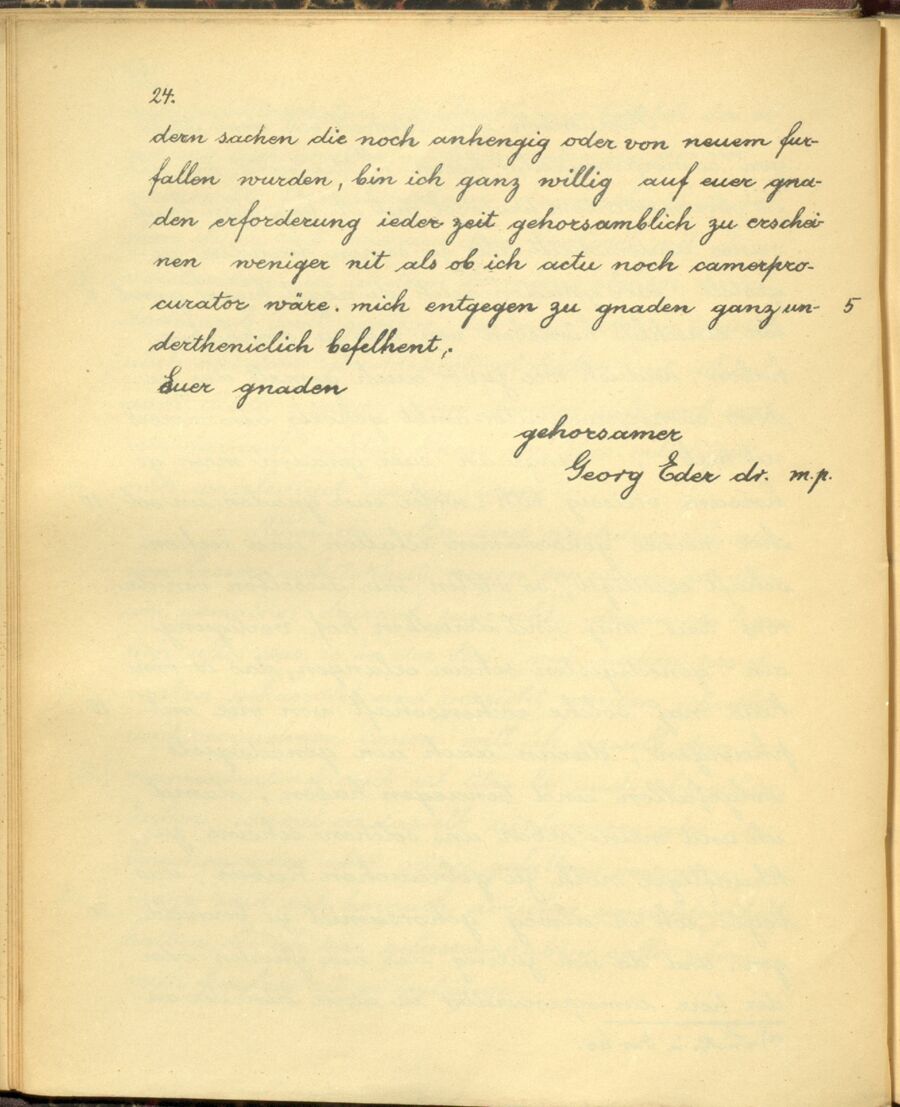 24.
dern sachen die noch anhengig oder von neuem fur-
fallen wurden, bin ich ganz willig auf euer gna-
den erforderung ieder zeit gehorsamblich zu erschei-
nen weniger nit als ob ich actu noch camerpro-
curator wäre. mich entgegen zu gnaden ganz un- 5
dertheniclich befelhent,.
Euer gnaden
gehorsamer
Georg Eder dr. m.p.